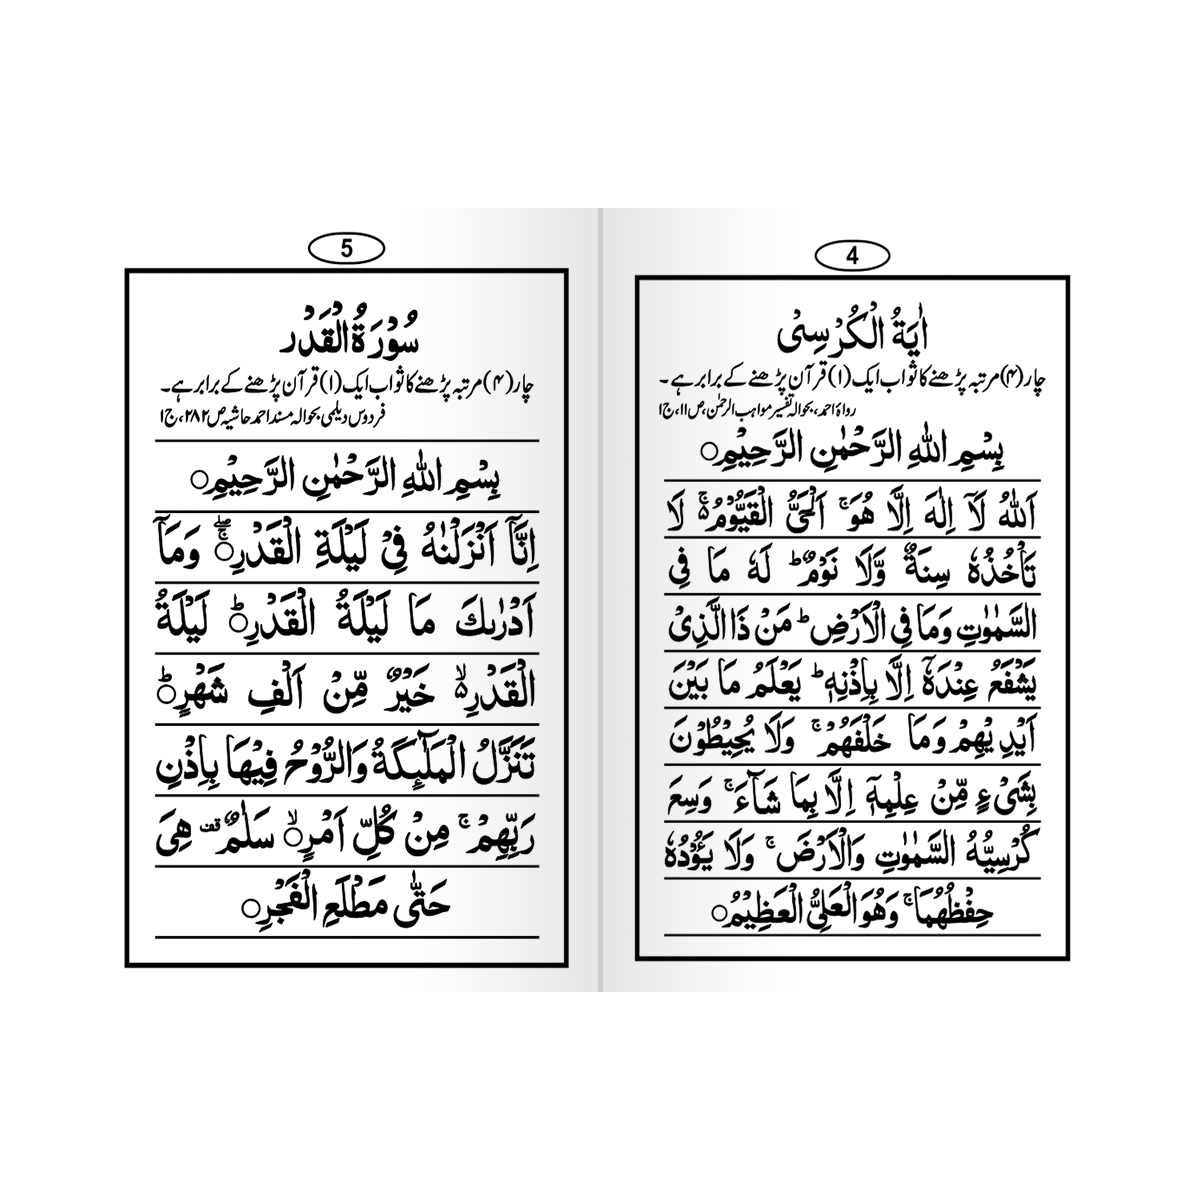 4
اٰیَۃُ الْکُرْسِیْ
چار (۴) مرتبہ پڑھنے کا ثواب ایک (۱) قرآن پڑھنے کے برابر ہے۔
رواۃ احمد، بحوالہ تفسیر مواہب الرحمٰن، ص۱۱، ج۱
بِسْمِ اللّٰہِ الرَّحْمٰنِ الرَّحِیْمِ○
اَللّٰہُ لَآ اِلٰہَ اِلَّا ھُوَ ۚ اَلْحَیُّ الْقَیُّوْمُ ۬ۚ لَا
تَاْخُذُہٗ سِنَۃٌ وَّلَا نَوْمٌ ؕ لَہٗ مَا فِی
السَّمٰوٰتِ وَمَا فِی الْاَرْضِ ؕ مَنْ ذَا الَّذِیْ
یَشْفَعُ عِنْدَہٗۤ اِلَّا بِاِذْنِہٖ ؕ یَعْلَمُ مَا بَیْنَ
اَیْدِیْھِمْ وَمَا خَلْفَھُمْ ۚ وَلَا یُحِیْطُوْنَ
بِشَیْءٍ مِّنْ عِلْمِہٖۤ اِلَّا بِمَا شَآءَ ۚ وَسِعَ
کُرْسِیُّہُ السَّمٰوٰتِ وَالْاَرْضَ ۚ وَلَا یَـُٔوْدُہٗ
حِفْظُھُمَا ۚ وَھُوَ الْعَلِیُّ الْعَظِیْمُ○
5
سُوْرَۃُ الْقَدْر
چار (۴) مرتبہ پڑھنے کا ثواب ایک (۱) قرآن پڑھنے کے برابر ہے۔
فردوس دیلمی بحوالہ مسند احمد حاشیہ ص۲۸۲، ج۱
بِسْمِ اللّٰہِ الرَّحْمٰنِ الرَّحِیْمِ○
اِنَّآ اَنْزَلْنٰہُ فِیْ لَیْلَۃِ الْقَدْرِ○ۚۖ وَمَآ
اَدْرٰىكَ مَا لَیْلَۃُ الْقَدْرِ○ؕ لَیْلَۃُ
الْقَدْرِ ۬ۙ خَیْرٌ مِّنْ اَلْفِ شَھْرٍ○ؕ
تَنَزَّلُ الْمَلٰٓئِکَۃُ وَالرُّوْحُ فِیْھَا بِاِذْنِ
رَبِّھِمْ ۚ مِنْ کُلِّ اَمْرٍ○ۙ سَلٰمٌ ۛقف ھِیَ
حَتّٰی مَطْلَعِ الْفَجْرِ○